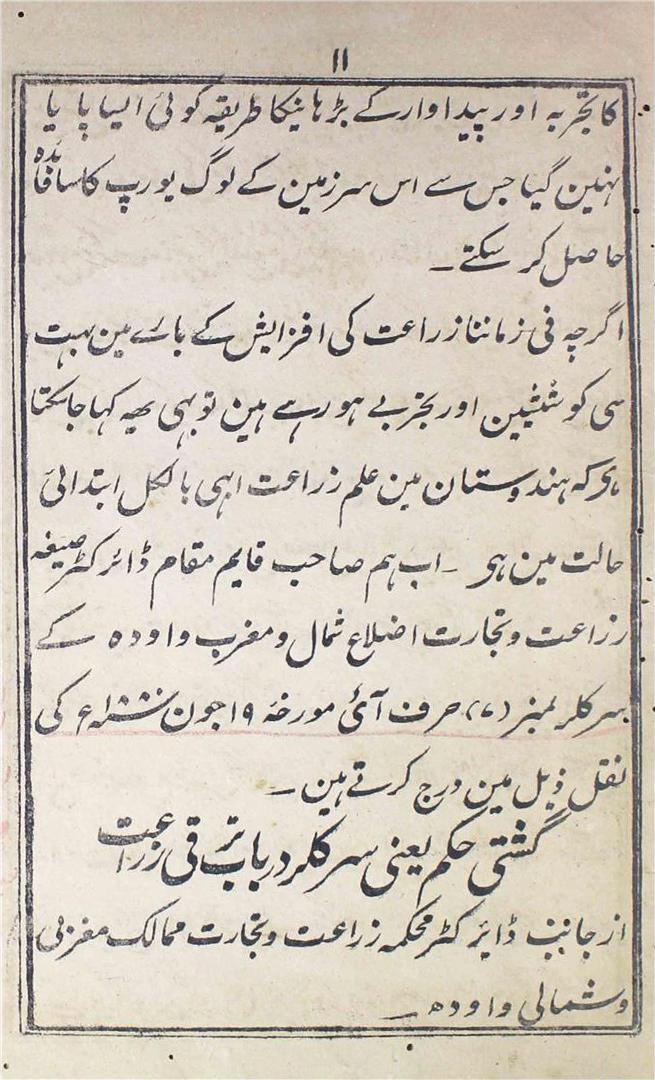 ۱۱
کا تجربہ اور پیداوار کے بڑہانیکا طریقہ کوئی ایسا پا یا
نہین گیا جس سے اس سرزمین کے لوگ یورپ کاسا فائدہ
حاصل کر سکتے۔
اگرچہ فی زماننا زراعت کی افزایش کے بارے مین بہت
سی کوششین اور تجربے ہو رہے ہین تو بہی یہہ کہا جاسکتا
ہی کہ ہندوستان مین علم زراعت ابہی بالکل ابتدائی
حالت مین ہی ۔ اب ہم صاحب قایم مقام ڈائرکٹر صیغہ
زراعت و تجارت اضلاع شمال و مغرب و اودہ کے
سرکلر نمبر (۷) حرف آئی مورخہ ۱۹ جون ؁۱۸۸۰ع کی
نقل ذیل مین درج کرتے ہین ۔
گشتی حکم یعنی سرکلر درباب ترقی زراعت
از جانب ڈائرکٹر محکمہ زراعت و تجارت ممالک مغربی
و شمالی و اودہ ۔